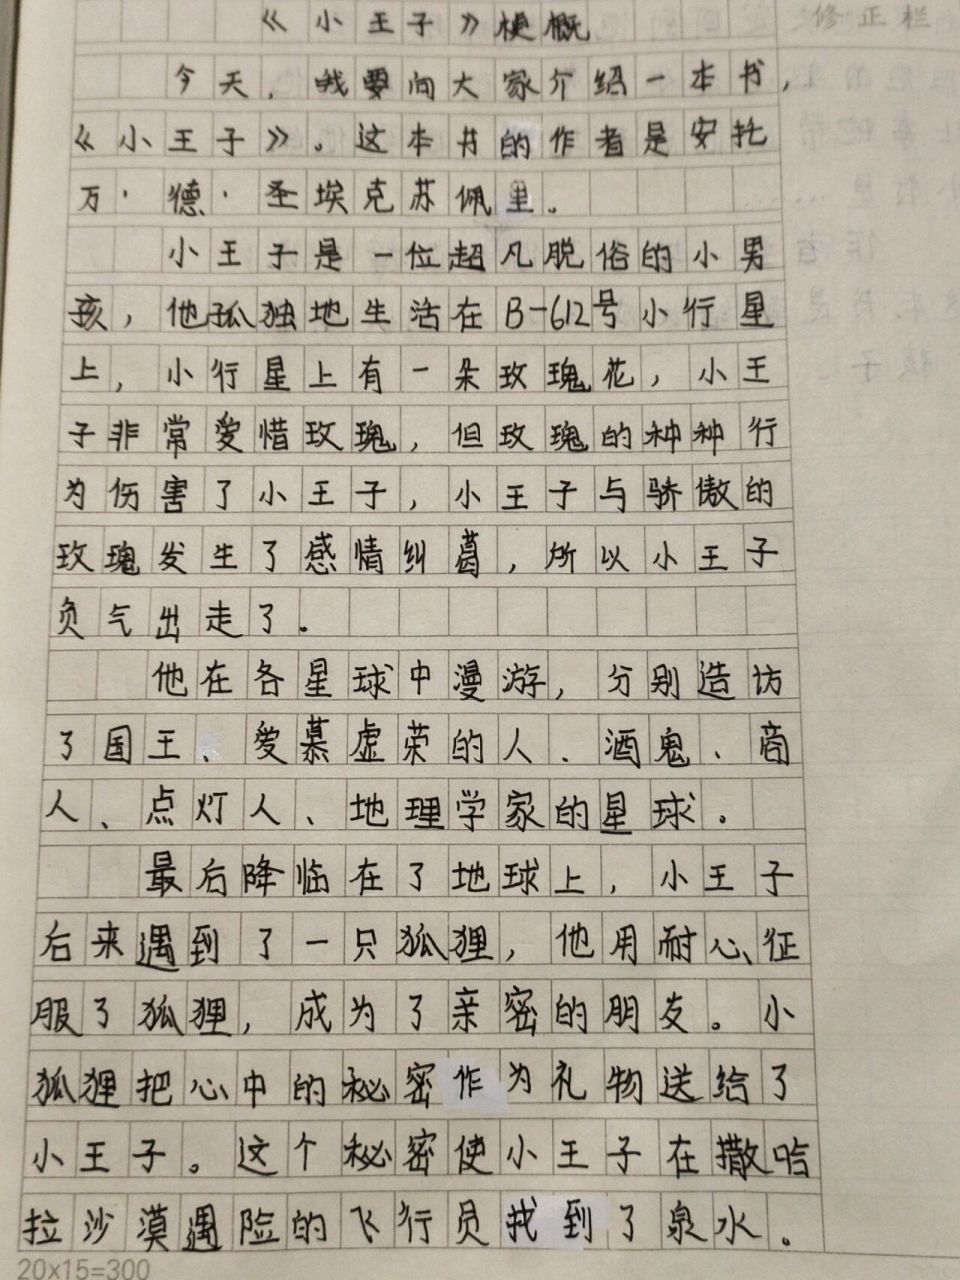 《小王子》梗概
修正栏
今天，我要向大家介绍一本书，
《小王子》。这本书的作者是安托
万·德·圣埃克苏佩里。
小王子是一位超凡脱俗的小男
孩，他孤独地生活在B-612号小行星
上，小行星上有一朵玫瑰花，小王
子非常爱惜玫瑰，但玫瑰的种种行
为伤害了小王子，小王子与骄傲的
玫瑰发生了感情纠葛，所以小王子
负气出走了。
他在各星球中漫游，分别造访
了国王、爱慕虚荣的人、酒鬼、商
人、点灯人、地理学家的星球。
最后降临在了地球上，小王子
后来遇到了一只狐狸，他用耐心征
服了狐狸，成为了亲密的朋友。小
狐狸把心中的秘密作为礼物送给了
小王子。这个秘密使小王子在撒哈
拉沙漠遇险的飞行员找到了泉水。
20x15=300